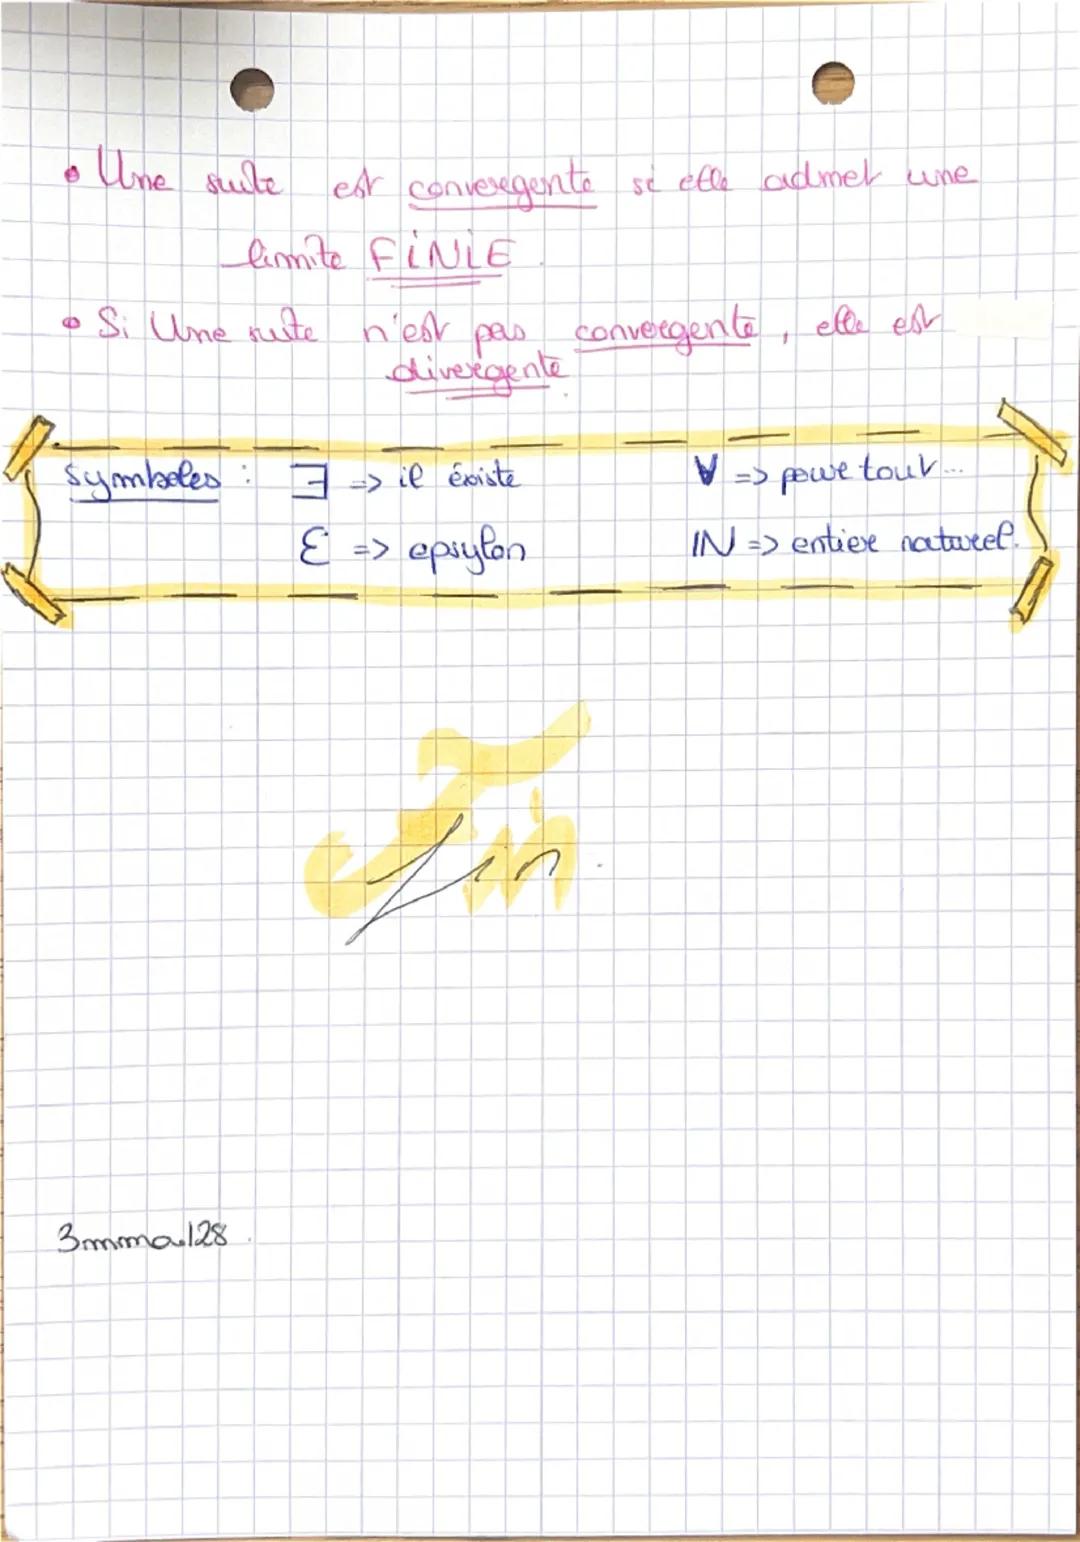 • Une suite est convergente si elle admet une
limite FiNiE.
• Si Une suite n'est pas convergente, elle est
divergente
Symboles : ∃ => il éxiste ∀ => pour tout...
ℇ => epsylon IN => entier naturel.
Fin
fin.
3mma128